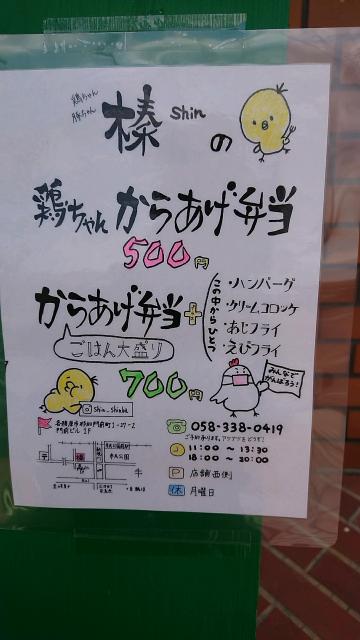 鶏ちゃん
豚ちゃん
榛 shin の
鶏ちゃん からあげ弁当
500円
からあげ弁当+
ごはん大盛り
この中からひとつ
・ハンバーグ
・クリームコロッケ
・あじフライ
・えびフライ
700円
みんなで
がんばろう!
058-338-0419
ご予約承ります。アツアツをどうぞ!
11:00 ～ 13:30
18:00 ～ 20:00
P 店舗西側
休 月曜日
各務原市那加門前町1-27-2
門前ビル 1F
市民公園